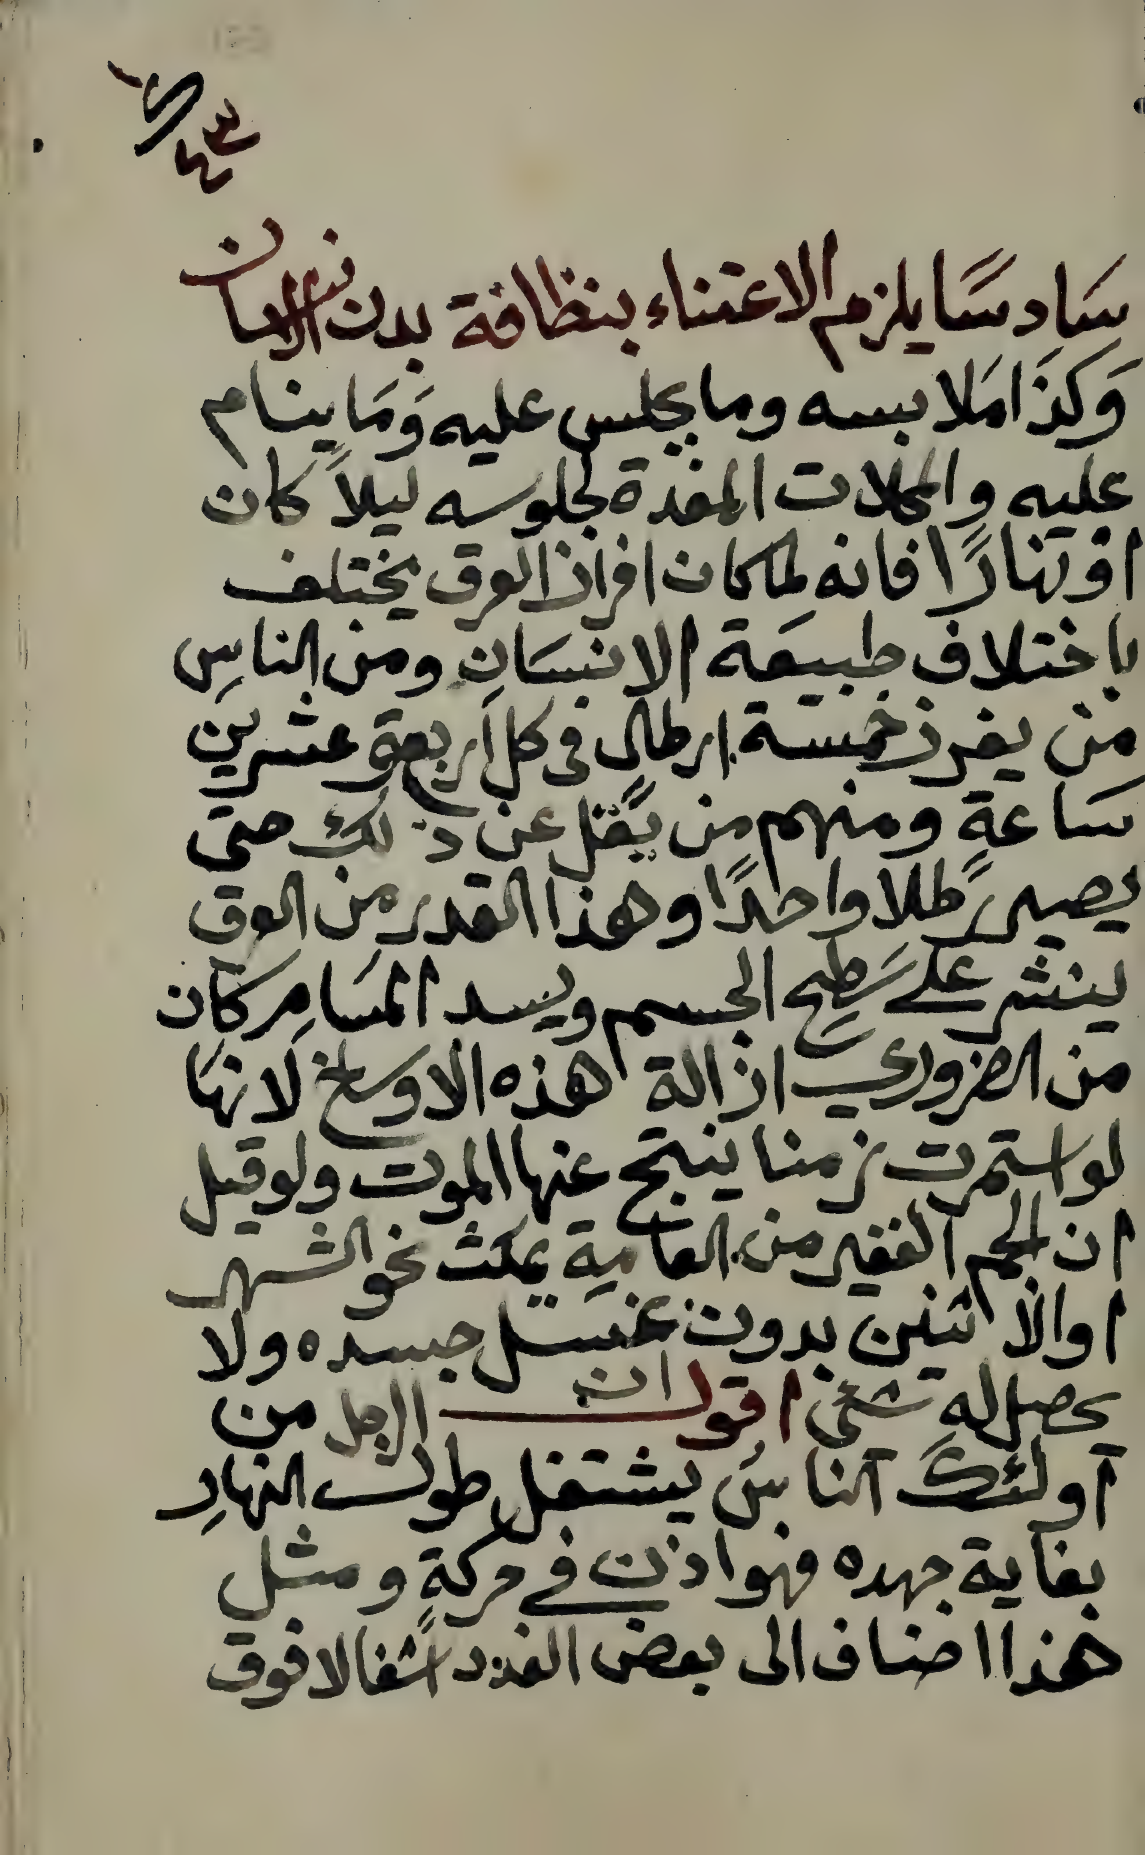 ٤٣
سَادسًا يلزم الاعتناء بنظافة بدن الانسان
وَكذَا مَلابسه وما يجلس عليه وَمَا ينام
عليه والمحلات المعدة لجلوسه ليلاً كان
اونهارًا فانه لما كان افراز العرق يختلف
باختلاف طبيعَة الانسَانِ ومن الناسِ
من يفرز خمسة ارطال في كل أربعة وعشرين
سَاعةٍ ومنهم من يَقل عن ذلك حتى
يصير رطلا واحدًا وهذا القدر من العرق
ينشر على سَطح الجسم ويسد المسَامِ كان
من الضروري ازالة هذه الاوساخ لانهَا
لو استمرت زمنا ينتج عنها الموت ولو قيل
ان الجم الغفير من العامية يمكث نحو الشهر
اوالاثنين بدون غسل جسده ولا
يحصل له شئ اقول ان الرجل من
اولئكَ الناسُ يشتغل طول النهارِ
بغاية جهده فهو اذن في حركةٍ ومثل
هذا اضاف الى بعض الغدد اشغالا فوق